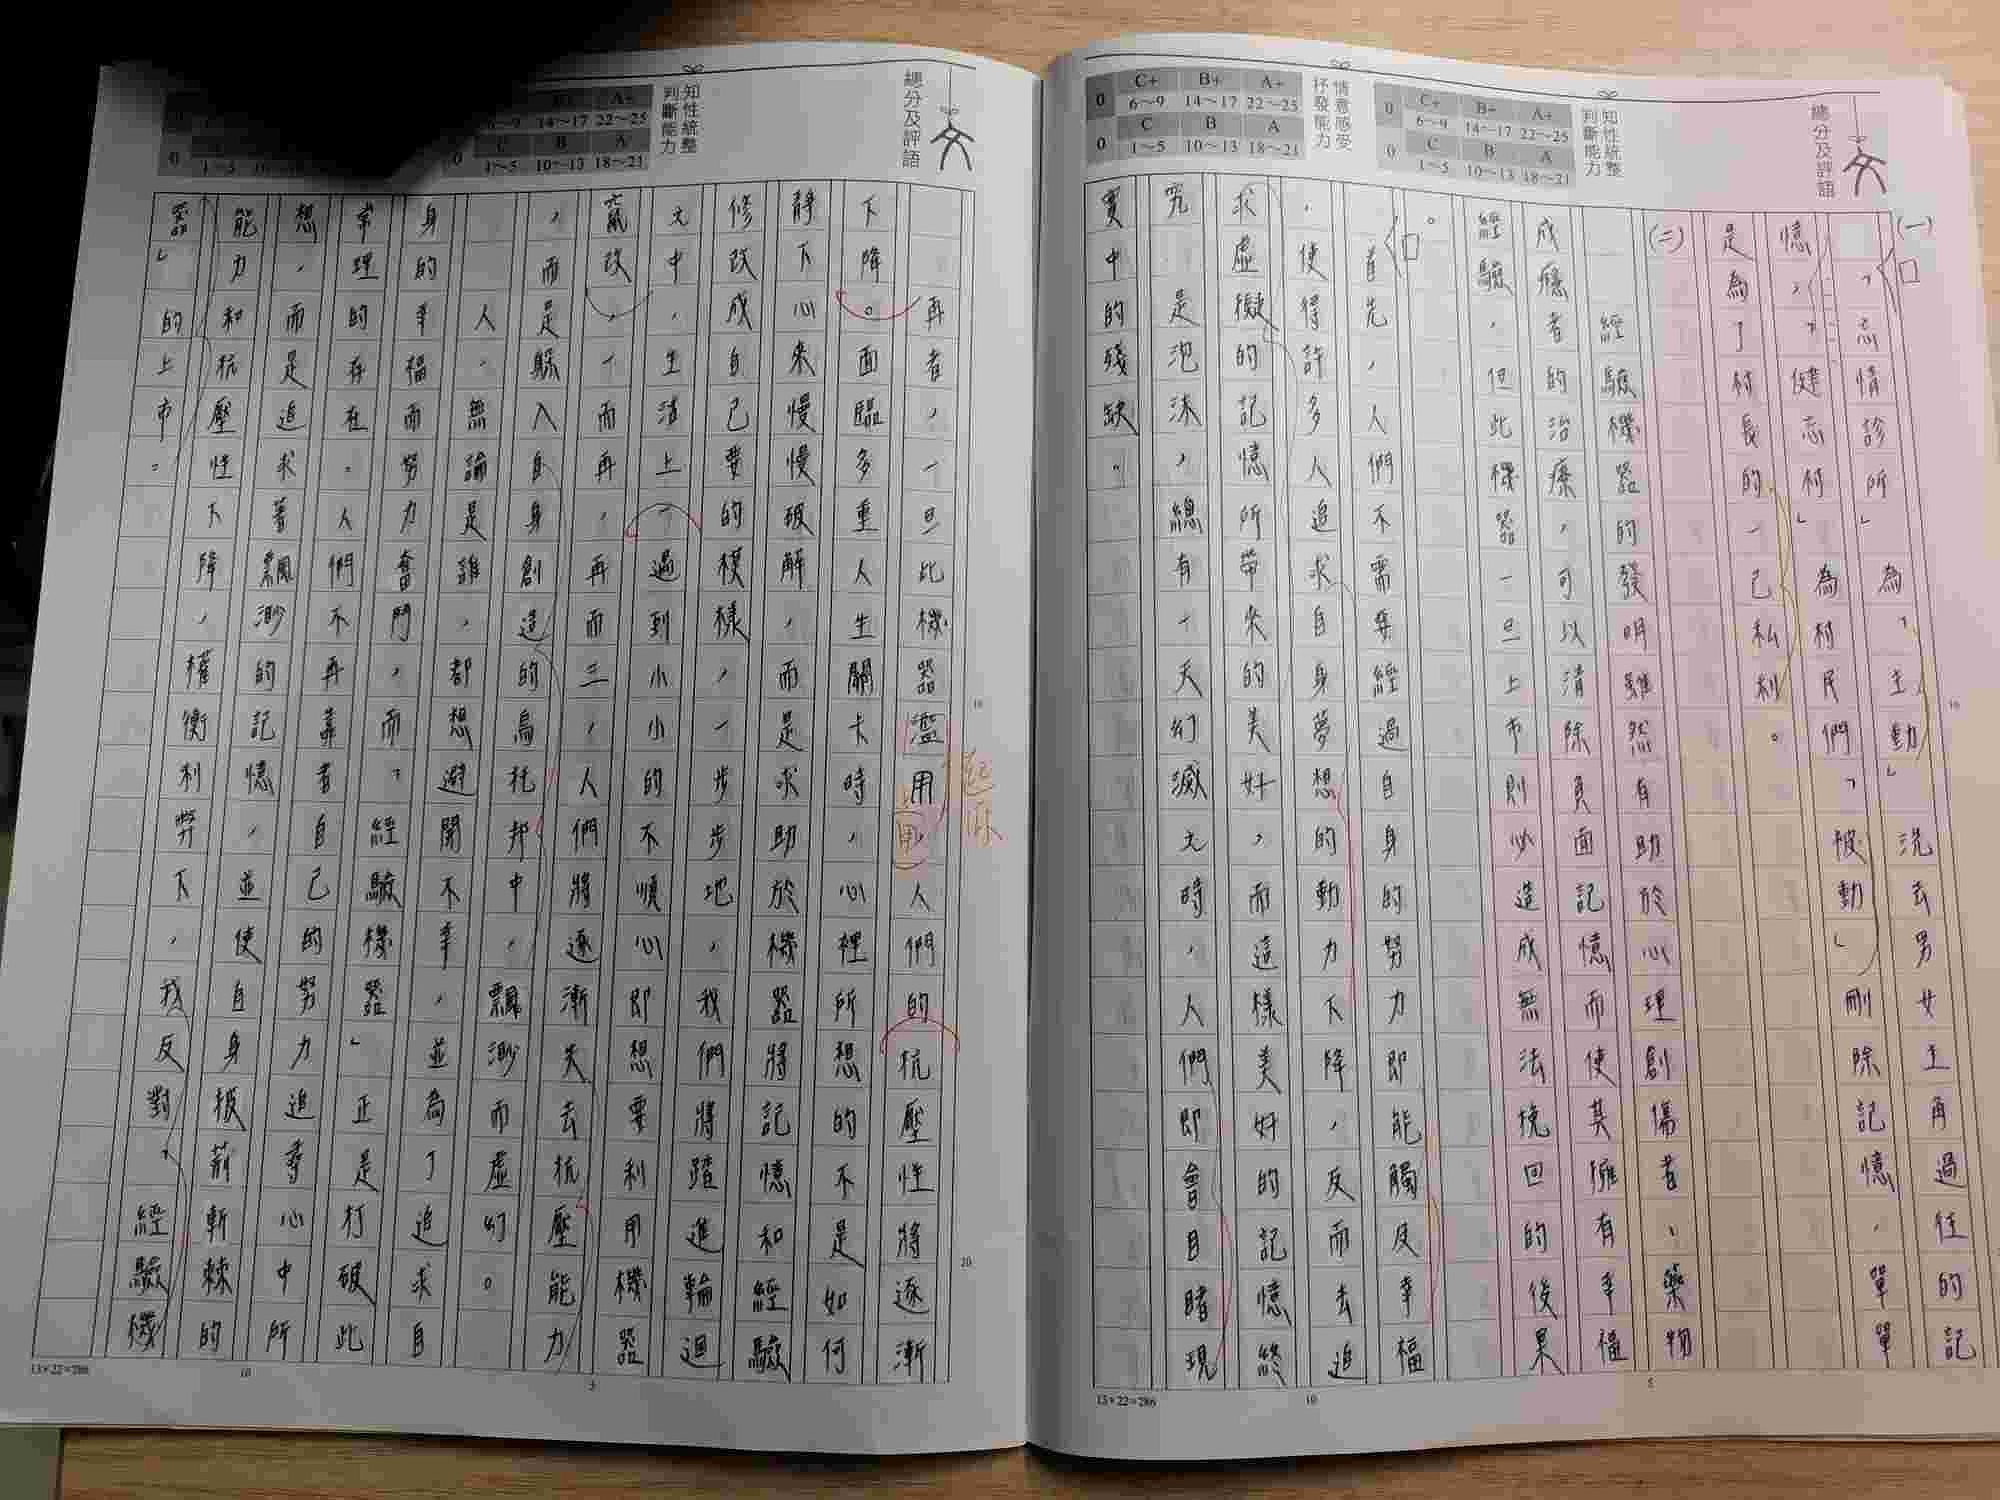 總分及評語
知性統整判斷能力
A+ 22~25
B+ 14~17
C+ 6~9
0
A 18~21
B 10~13
C 1~5
0
情意感受抒發能力
A+ 22~25
B+ 14~17
C+ 6~9
0
A 18~21
B 10~13
C 1~5
0
(一)
「忘情診所」為「主動」洗去男女主角過往的記
憶,「健忘村」為村民們「被動」刪除記憶,單單
是為了村長的一己私利。
(二)
經驗機器的發明雖然有助於心理創傷者、藥物
成癮者的治療,可以清除負面記憶而使其擁有幸福
經驗,但此機器一旦上市則必造成無法挽回的後果
。
首先,人們不需要經過自身的努力即能觸及幸福
,使得許多人追求自身夢想的動力下降,反而去追
求虛擬的記憶所帶來的美好,而這樣美好的記憶終
究是泡沫,總有一天幻滅之時,人們即會目睹現
實中的殘缺。
13×22=286
10
5
10
總分及評語
知性統整判斷能力
A+ 22~25
B+ 14~17
6~9
A 18~21
B 10~13
C 1~5
0
再者,一旦此機器濫用,人們的抗壓性將逐漸
下降。面臨多重人生關卡時,心裡所想的不是如何
靜下心來慢慢破解,而是求助於機器將記憶和經驗
修改成自己要的模樣,一步步地,我們將踏進輪迴
之中,生活上一過到小小的不順心,即想要利用機器
竄改,一而再,再而三,人們將逐漸失去抗壓能力
,而是躲入自身創造的烏托邦中,飄渺而虛幻。
人,無論是誰,都想避開不幸,並為了追求自
身的幸福而努力奮鬥,而「經驗機器」正是打破此
常理的存在。人們不再靠著自己的努力追尋心中所
想,而是追求著飄渺的記憶,並使自身披荊斬棘的
能力和抗壓性下降,權衡利弊下,我反對「經驗機
器」的上市。
10
20
13×22=286
10
5